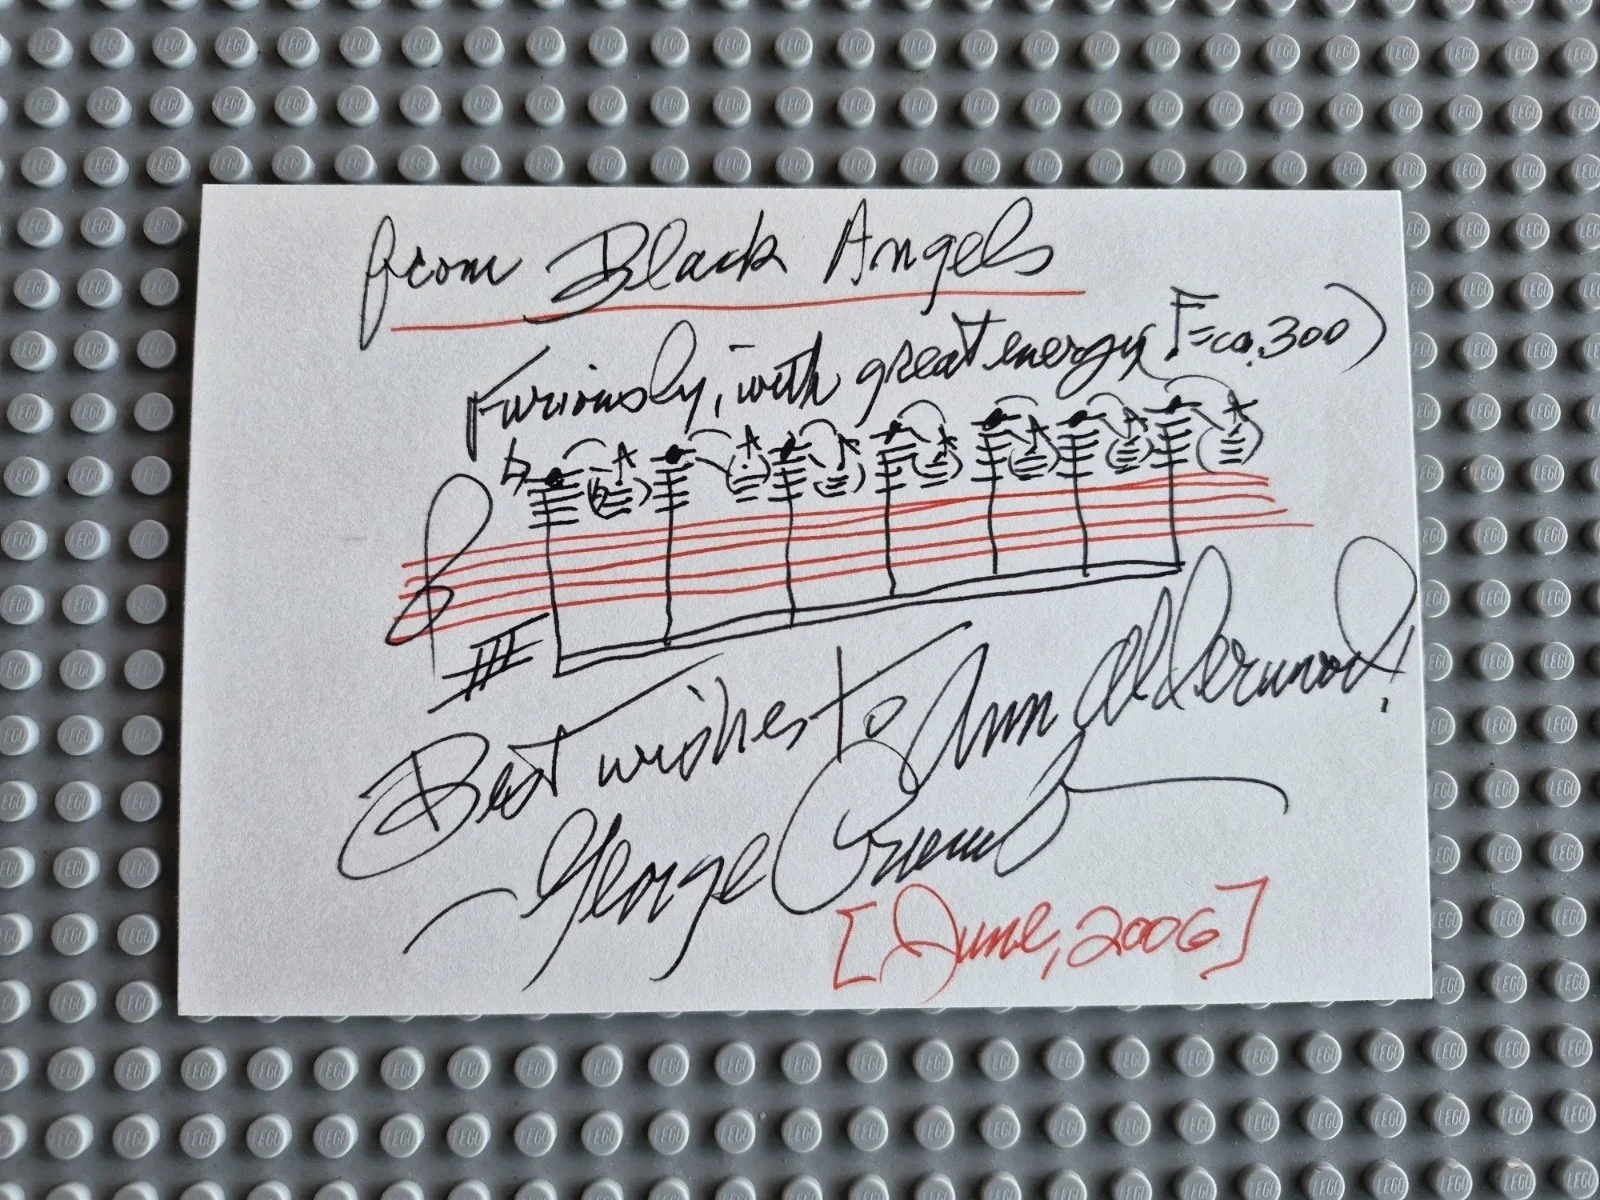 from Black Angels
Furiously, with great energy (♪=ca.300)
III
Best wishes to Ann Alderwood!
— George Crumb
[June, 2006]
LEGO